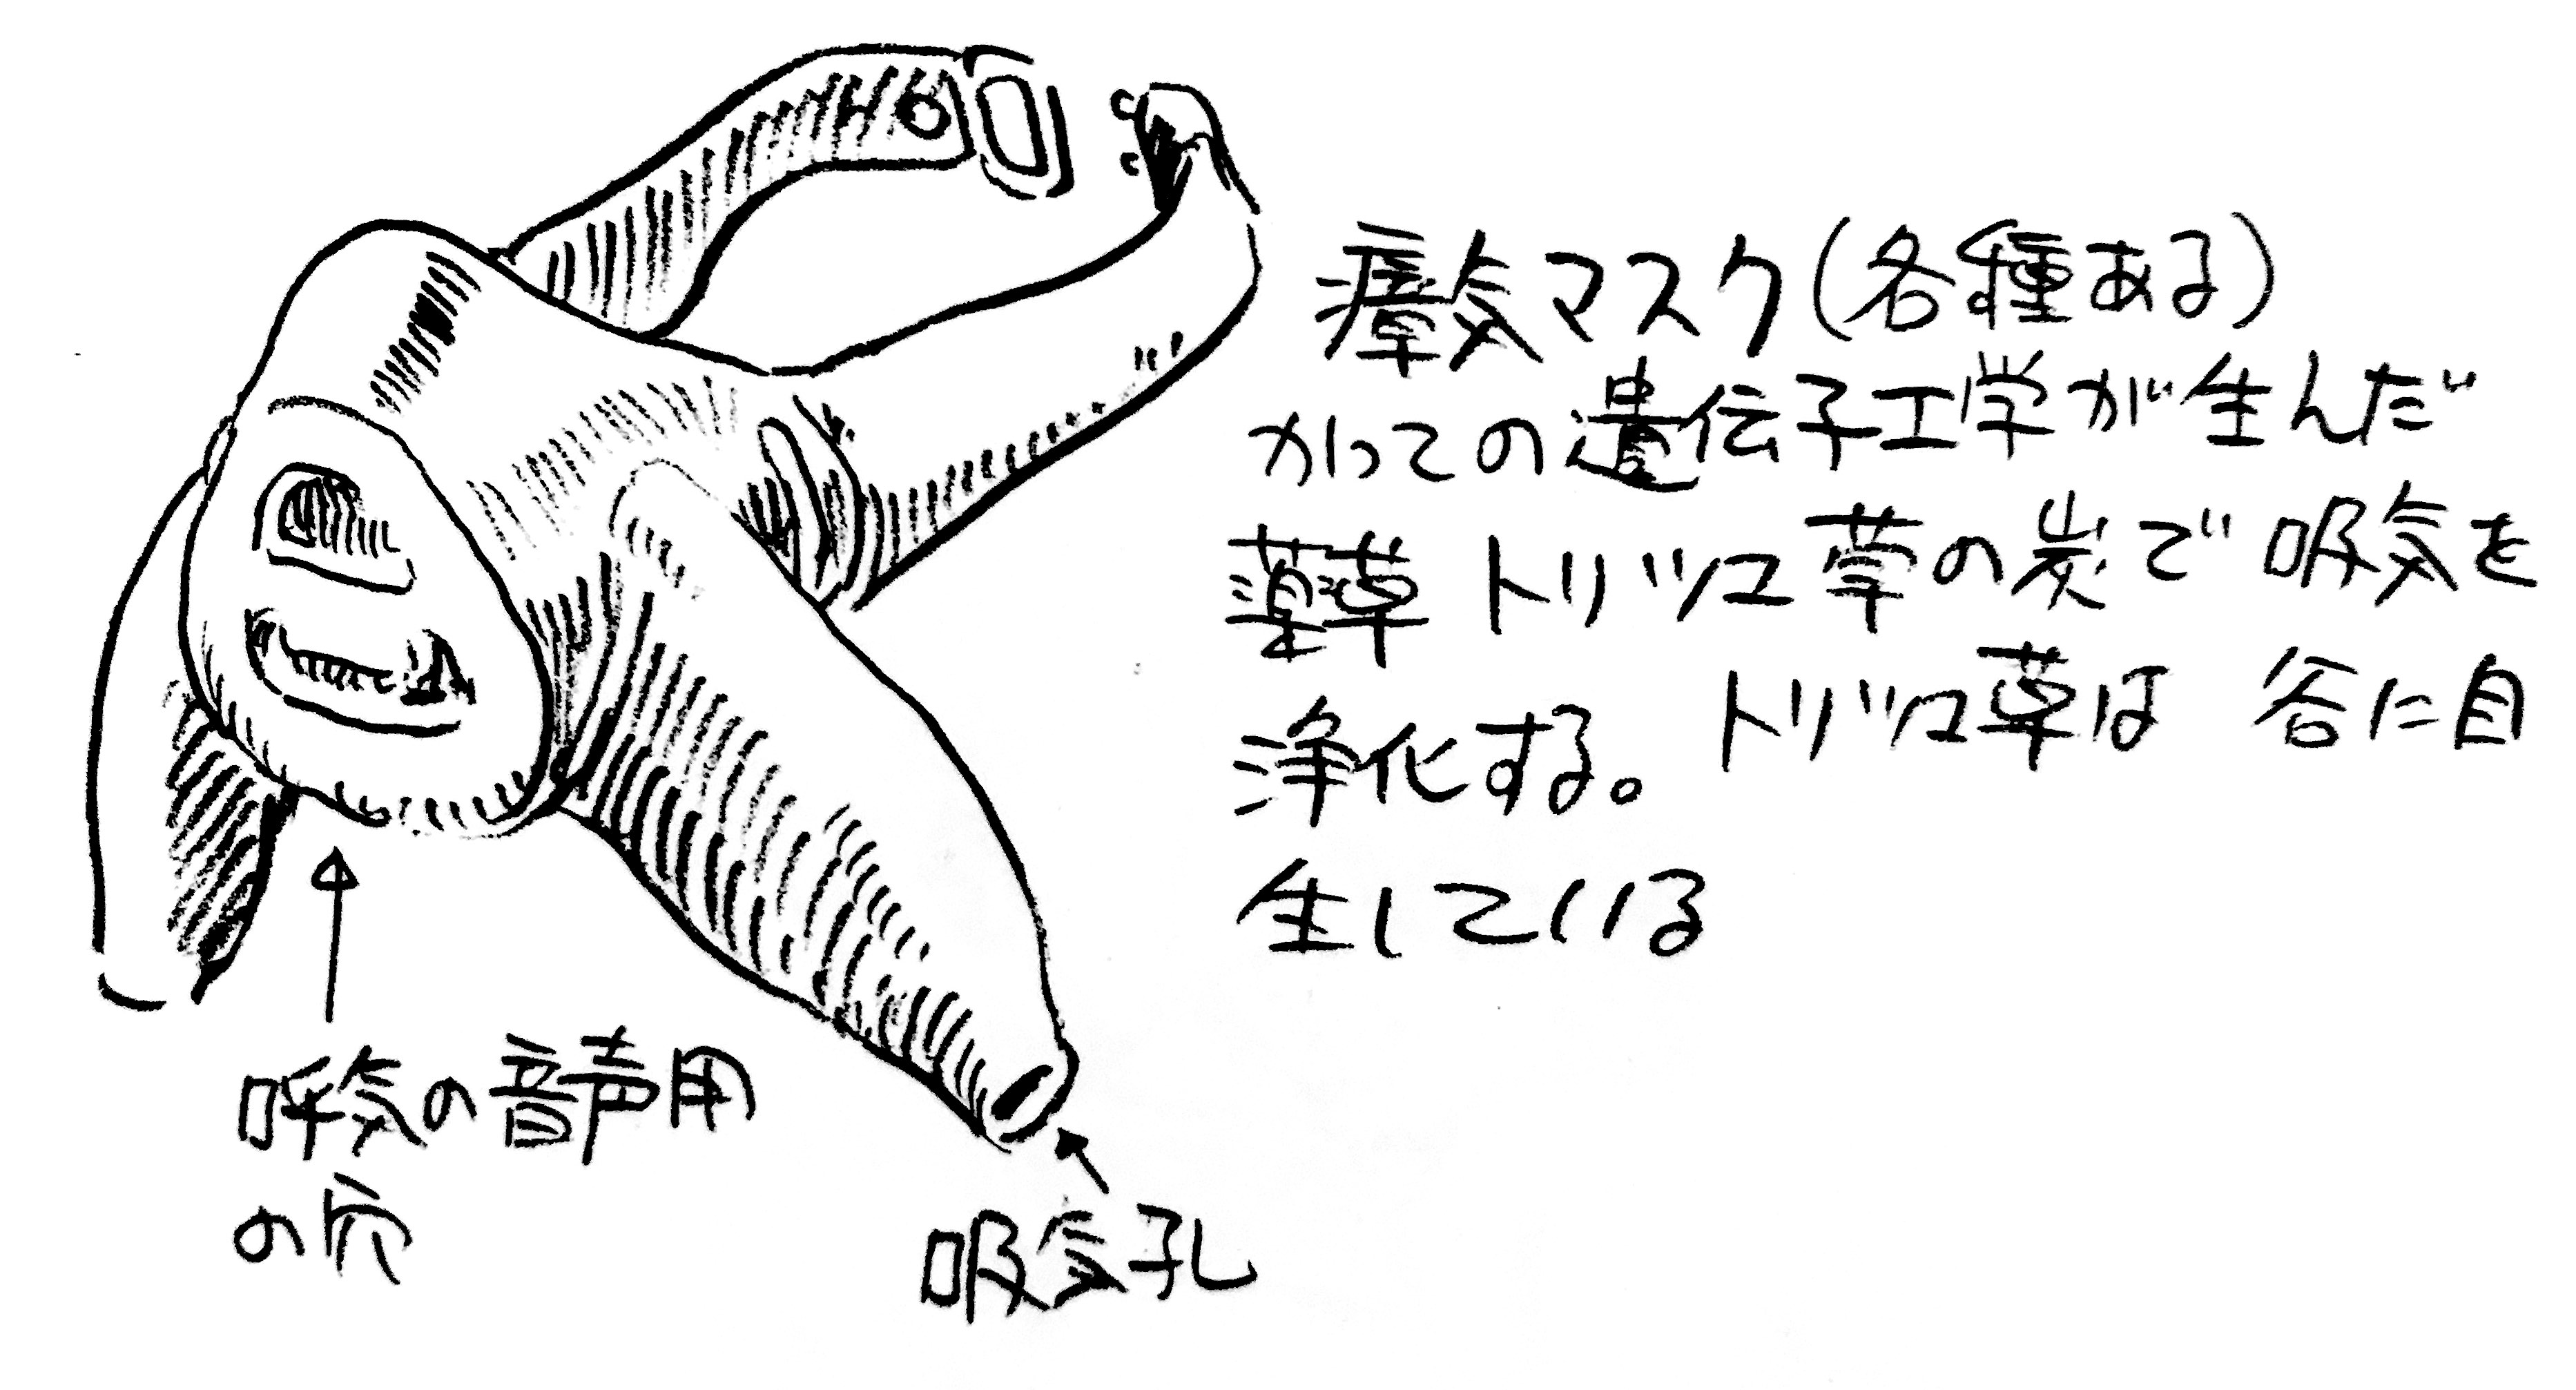 瘴気マスク(各種ある)
かつての遺伝子工学が生んだ
薬草トリツユ草の炭で吸気を
浄化する。トリツユ草は谷に自
生している
呼気の音声用
の穴
吸気孔